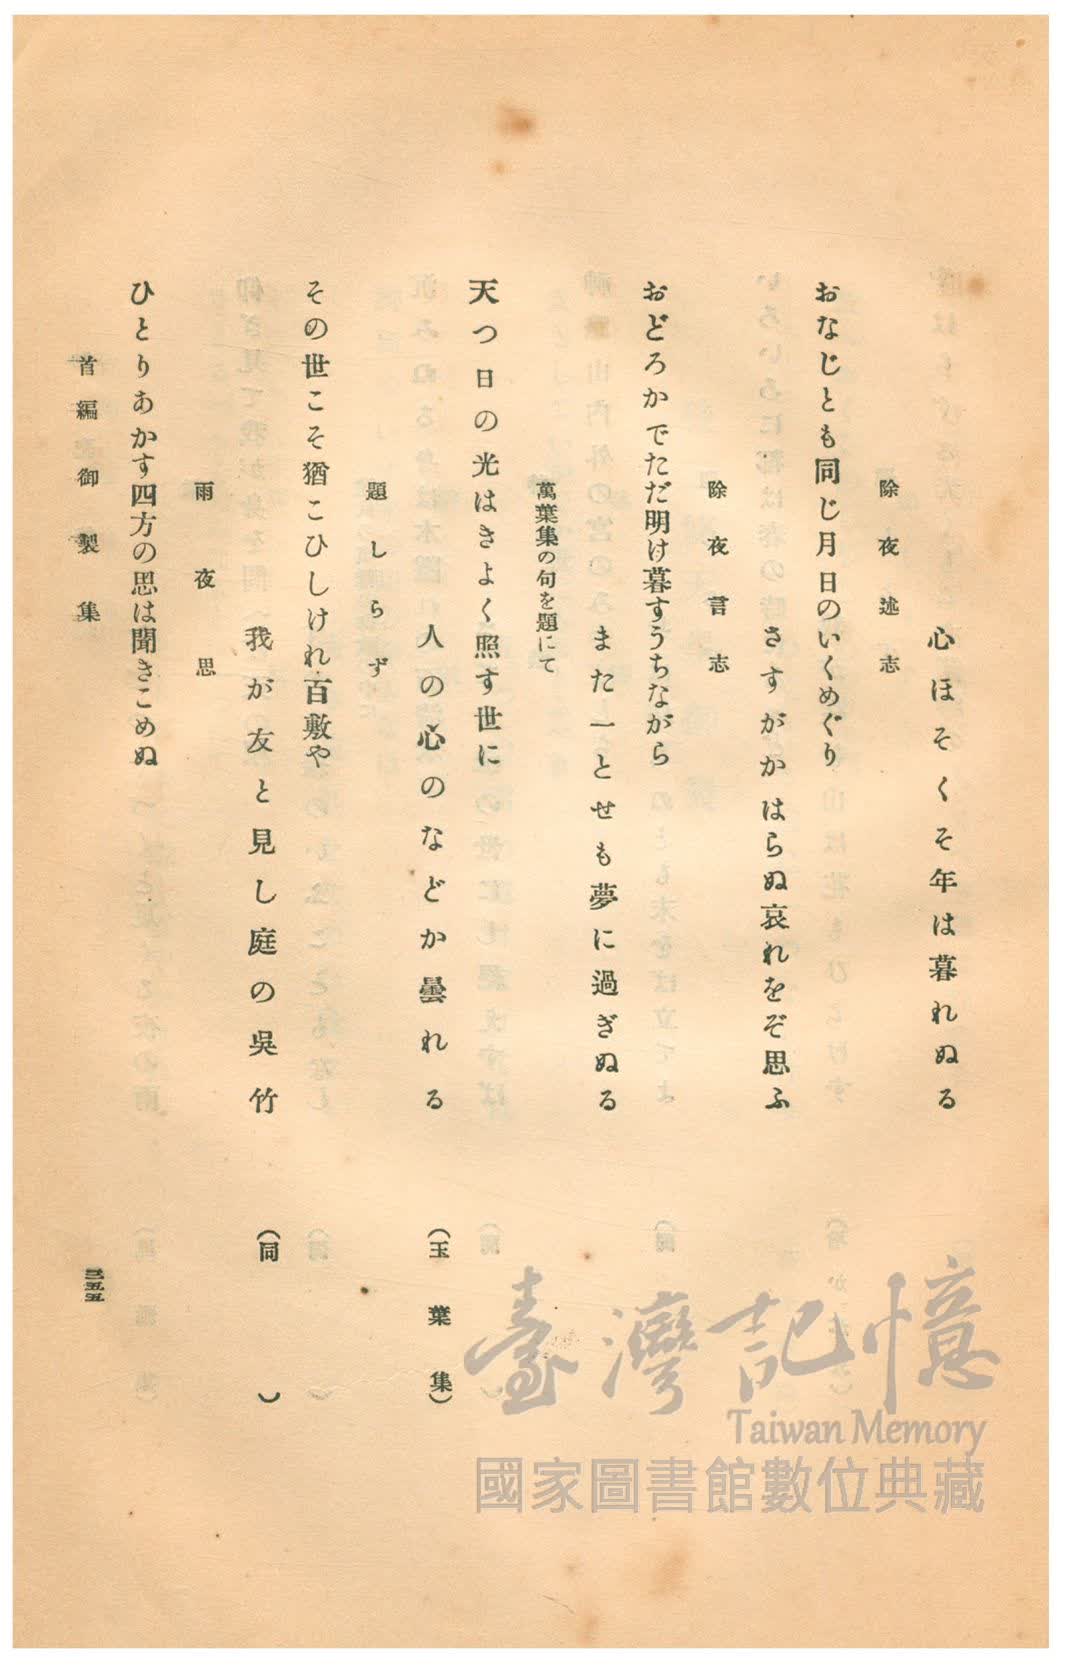 心ほそくそ年は暮れぬる
除夜述志
おなじとも同じ月日のいくめぐり
さすがかはらぬ哀れをぞ思ふ
除夜言志
おどろかでただ明け暮すうちながら
また一とせも夢に過ぎぬる
萬葉集の句を題にて
天つ日の光はきよく照す世に
人の心のなどか曇れる
（玉葉集）
題しらず
その世こそ猶こひしけれ百敷や
我が友と見し庭の呉竹
（同）
雨夜思
ひとりあかす四方の思は聞きこめぬ
首編御製集
二五五
臺灣記憶
Taiwan Memory
國家圖書館數位典藏